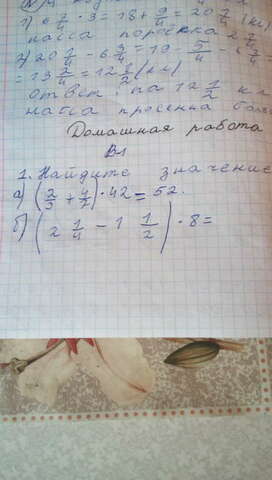 1) 6 3/4 · 3 = 18 + 9/4 = 20 1/4 (кг)
масса поросёнка
2) 20 1/4 - 6 3/4 = 19 5/4 - 6 3/4 =
= 13 2/4 = 1
Ответ: на 12 1/2 кг
масса
Домашная работа
В1
1. Найдите значение
а) (2/3 + 4/7) · 42 = 52.
б) (2 1/4 - 1 1/2) · 8 =